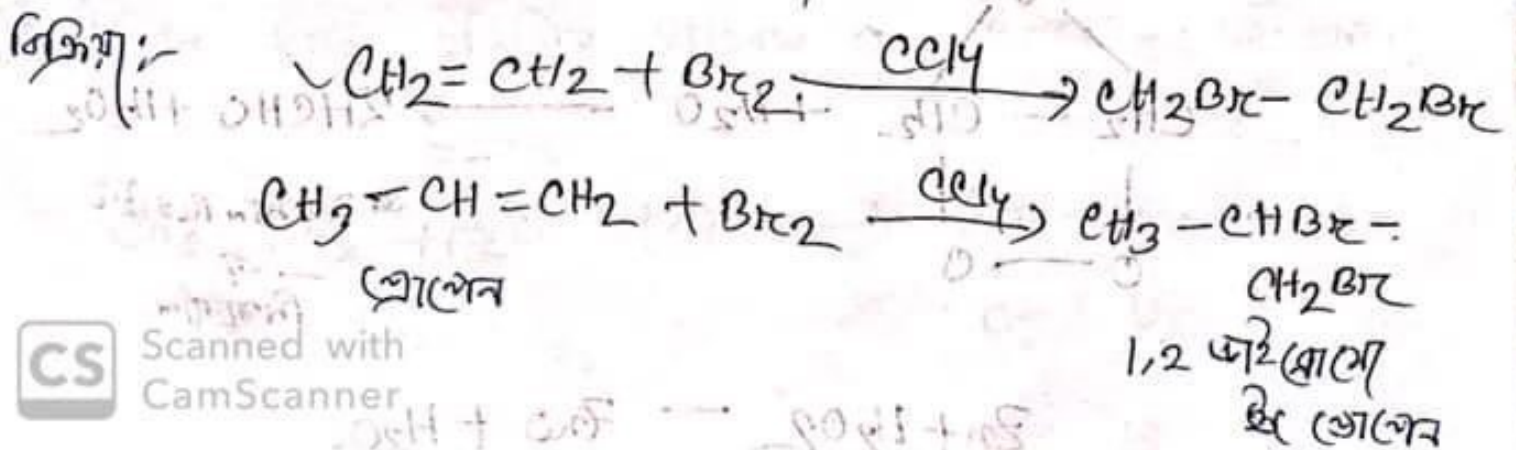 বিক্রিয়া:-
CH2 = CH2 + Br2 CCl4 → CH2Br - CH2Br
CH3 - CH = CH2 + Br2 CCl4 → CH3 - CHBr -
CH2Br
প্রোপেন
1,2 ডাই ব্রোমো
প্রোপেন
CS Scanned with
CamScanner